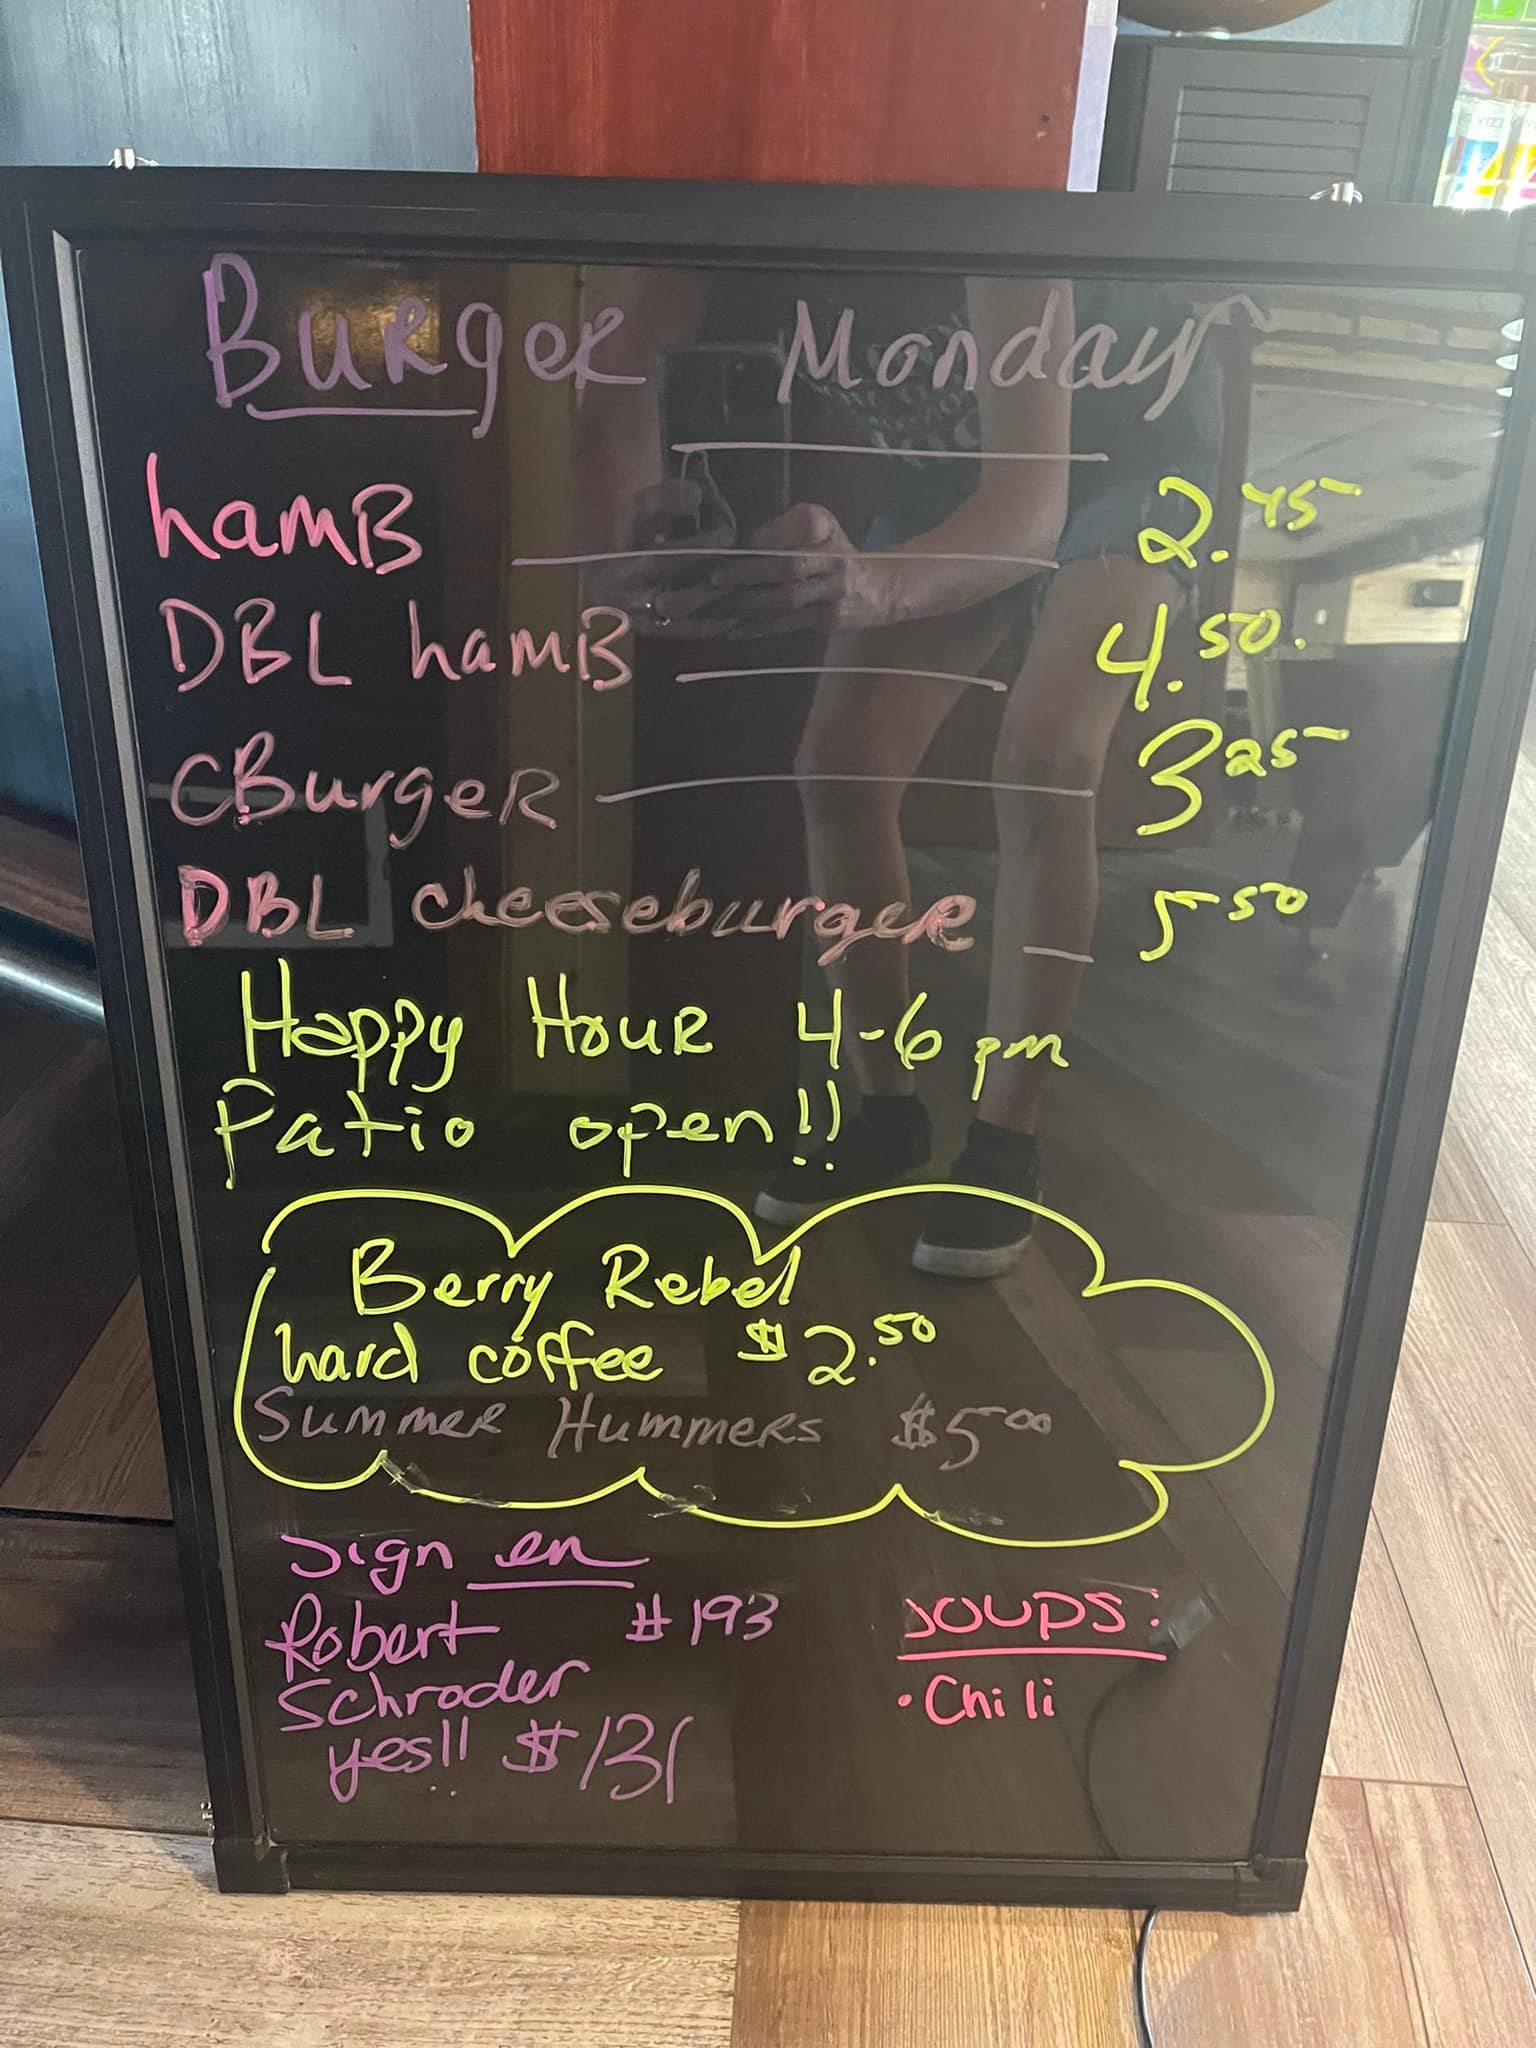 Burger Monday
hamB 2.45
DBL hamB 4.50.
CBurger 3 25
DBL cheeseburger 5 50
Happy Hour 4-6 pm
Patio open!!
Berry Rebel
hard coffee $2.50
Summer Hummers $5 00
Sign en
Robert #193
Schroder
yes!! $131
SOUPS:
• Chili